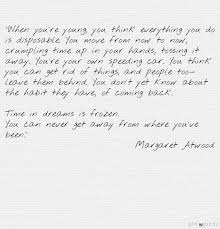 "When you're young, you think everything you do
is disposable. You move from now to now,
crumpling time up in your hands, tossing it
away. You're your own speeding car. You think
you can get rid of things, and people too—
leave them behind. You don't yet know about
the habit they have, of coming back.
Time in dreams is frozen.
You can never get away from where you've
been."
Margaret Atwood